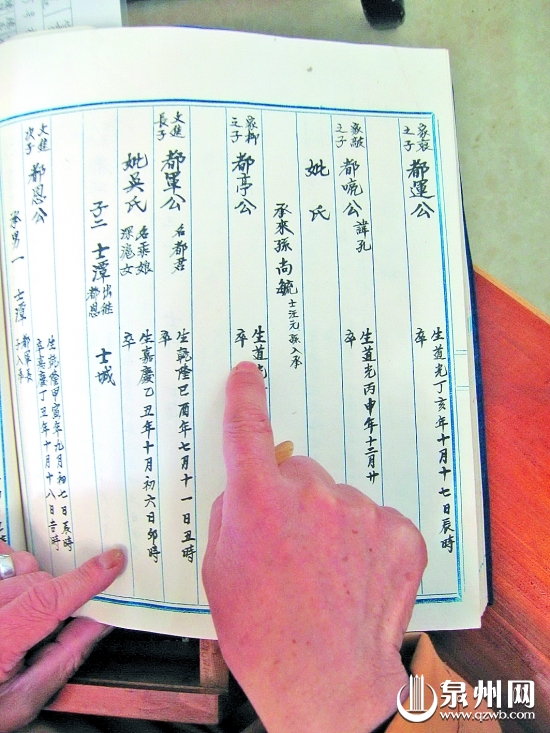 之子 都運公
生道光丁亥年十月十七日辰時
卒
之子 都唬公 諱孔
生道光丙申年十二月廿
卒
妣氏
承來孫尚毓 士汪元孫入承
之子 都亭公
生道光
卒
文進長子 都軍公 名都君
生乾隆己酉年七月十一日丑時
卒
妣吳氏 名乘娘 深滬女
生嘉慶乙丑年十月初六日卯時
卒
子二 士潭 出繼都恩 士城
文進次子 都恩公
生乾隆甲寅年九月初七日辰時
卒嘉慶丁丑年十月十八日吉時
承男一 士潭 都軍長子入承
泉州网
www.qzwb.com